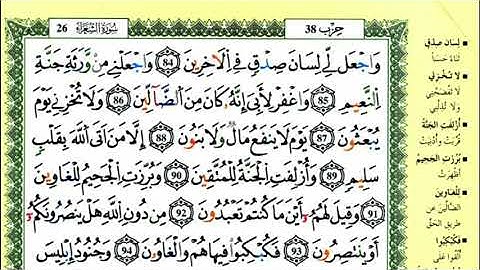 حِزْب 38
سُورَةُ الشُّعَرَاءِ 26
وَاجْعَل لِّي لِسَانَ صِدْقٍ فِي الْآخِرِينَ 84 وَاجْعَلْنِي مِن وَرَثَةِ جَنَّةِ
النَّعِيمِ 85 وَاغْفِرْ لِأَبِي إِنَّهُ كَانَ مِنَ الضَّالِّينَ 86 وَلَا تُخْزِنِي يَوْمَ
يُبْعَثُونَ 87 يَوْمَ لَا يَنفَعُ مَالٌ وَلَا بَنُونَ 88 إِلَّا مَنْ أَتَى اللَّهَ بِقَلْبٍ
سَلِيمٍ 89 وَأُزْلِفَتِ الْجَنَّةُ لِلْمُتَّقِينَ 90 وَبُرِّزَتِ الْجَحِيمُ لِلْغَاوِينَ
91 وَقِيلَ لَهُمْ أَيْنَ مَا كُنتُمْ تَعْبُدُونَ 92 مِن دُونِ اللَّهِ هَلْ يَنصُرُونَكُمْ
أَوْ يَنتَصِرُونَ 93 فَكُبْكِبُوا فِيهَا هُمْ وَالْغَاوُونَ 94 وَجُنُودُ إِبْلِيسَ
لِسَانَ صِدْقٍ
ثَنَاءً حَسَنًا
لَا تُخْزِنِي
لَا تَفْضَحْنِي
وَلَا تُذِلَّنِي
أُزْلِفَتِ الْجَنَّةُ
قُرِّبَتْ وَأُدْنِيَتْ
بُرِّزَتِ الْجَحِيمُ
أُظْهِرَتْ
لِلْغَاوِينَ
الضَّالِّينَ عَنْ
طَرِيقِ الْحَقِّ
فَكُبْكِبُوا
أُلْقُوا عَلَى